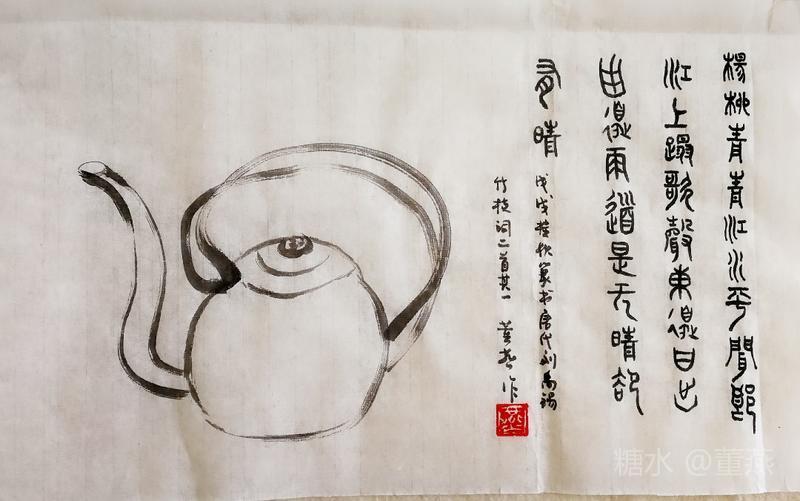 楊柳青青江水平聞郎
江上蹋歌聲東邊日出
西邊雨道是无晴卻
有晴
戊戌桂秋篆书唐代刘禹锡
竹枝词二首其一 董燕作
糖水 @董燕